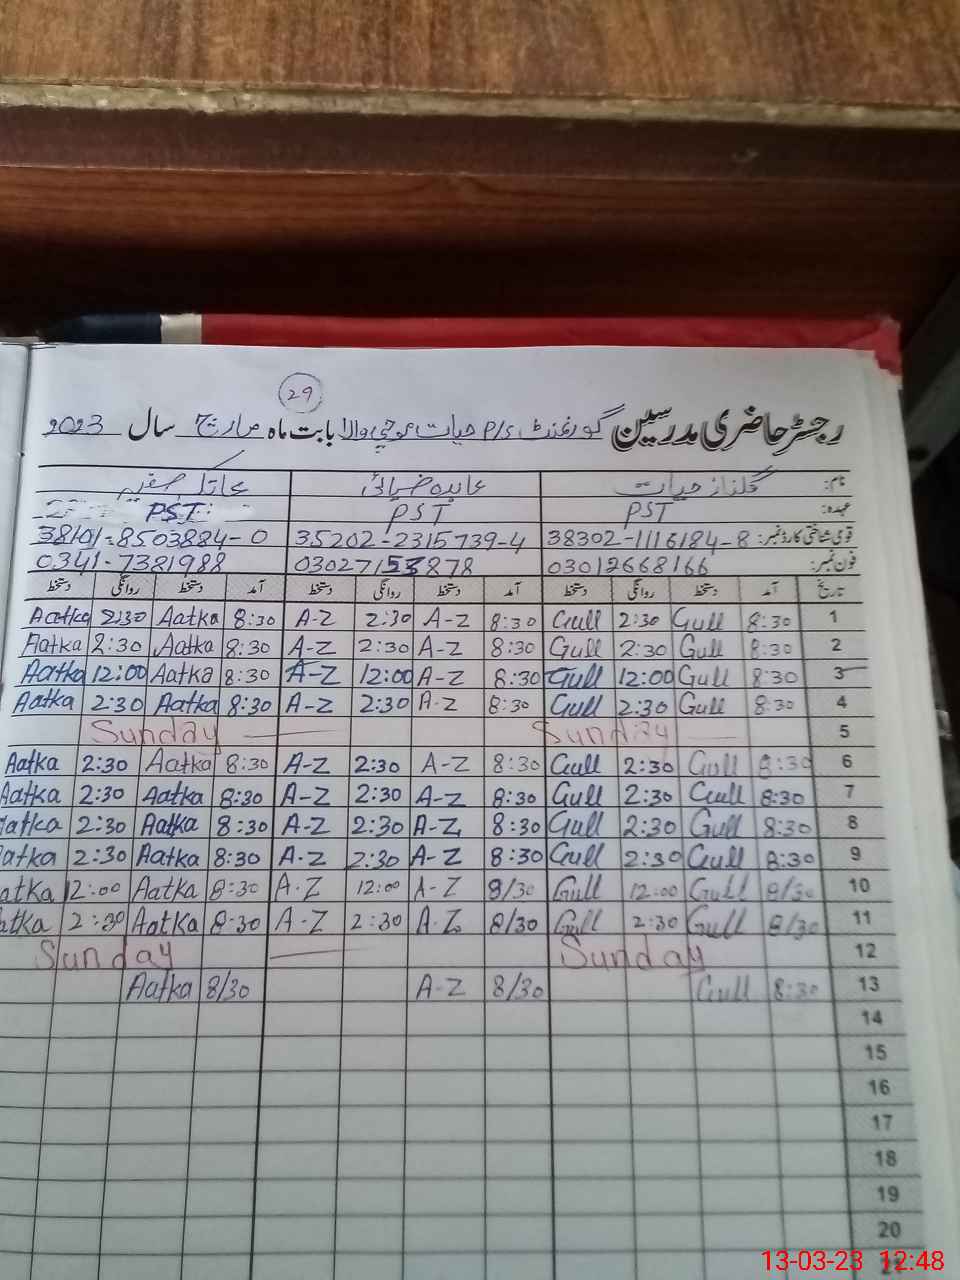 29
رجسٹر حاضری مدرسین گورنمنٹ P/S حیات موچی والا بابت ماہ مارچ سال 2023
نام: گلناز حیات عابدہ ضیائی عاتکہ صفیہ
عہدہ: PST PST PST
قومی شناختی کارڈ نمبر: 38302-1116184-8 35202-2315739-4 38101-8503884-0
فون نمبر: 03012668166 03027153878 0341-7381988
تاریخ آمد دستخط روانگی دستخط آمد دستخط روانگی دستخط آمد دستخط روانگی دستخط
1 8:30 Gull 2:30 Gull 8:30 A-Z 2:30 A-Z 8:30 Aatka 2:30 Aatka
2 8:30 Gull 2:30 Gull 8:30 A-Z 2:30 A-Z 8:30 Aatka 2:30 Aatka
3 8:30 Gull 12:00 Gull 8:30 A-Z 12:00 A-Z 8:30 Aatka 12:00 Aatka
4 8:30 Gull 2:30 Gull 8:30 A-Z 2:30 A-Z 8:30 Aatka 2:30 Aatka
5 Sunday Sunday
6 8:30 Gull 2:30 Gull 8:30 A-Z 2:30 A-Z 8:30 Aatka 2:30 Aatka
7 8:30 Gull 2:30 Gull 8:30 A-Z 2:30 A-Z 8:30 Aatka 2:30 Aatka
8 8:30 Gull 2:30 Gull 8:30 A-Z 2:30 A-Z 8:30 Aatka 2:30 Aatka
9 8:30 Gull 2:30 Gull 8:30 A-Z 2:30 A-Z 8:30 Aatka 2:30 atka
10 8/30 Gull 12:00 Gull 8/30 A-Z 12:00 A-Z 8:30 Aatka 12:00 atka
11 8/30 Gull 2:30 Gull 8/30 A-Z 2:30 A-Z 8:30 Aatka 2:30 atka
12 Sunday Sunday
13 8:30 Gull 8/30 A-Z 8/30 Aatka
14
15
16
17
18
19
20
21
13-03-23 12:48